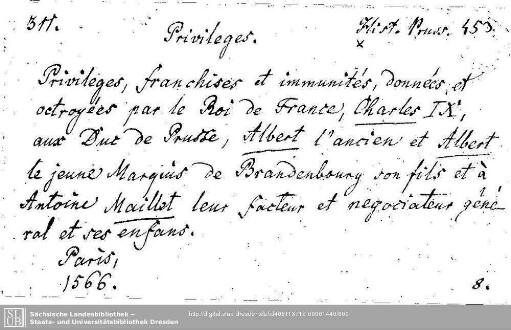 311.
Hist. Pruss. 453.
x
Privileges.
Privileges, franchises et immunités, données et
octroyées par le Roi de France, Charles IX,
aux Duc de Prusse, Albert l'ancien et Albert
le jeune Marquis de Brandenbourg son fils et à
Antoine Maillet leur facteur et negociateur géné-
ral et ses enfans.
Paris,
1566.
8.
SLUB
Sächsische Landesbibliothek –
Staats- und Universitätsbibliothek Dresden